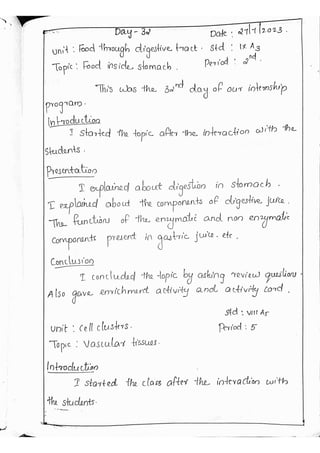 Day - 32
Date : 27/7/2023.
Unit : Food through digestive tract. Std : IX A3
Topic : Food inside stomach. Period : 2nd.
This was the 32nd day of our internship
program.
Introduction
I started the topic after the interaction with the
students.
Presentation
I explained about digestion in stomach.
I explained about the components of digestive juice.
The functions of the enzymatic and non enzymatic
components present in gastric juice. etc.
Conclusion
I concluded the topic by asking review questions
Also gave enrichment activity and activity card.
Std : VIII A5
Unit : Cell clusters. Period : 5
Topic : Vascular tissues.
Introduction
I started the class after the interaction with
the students.